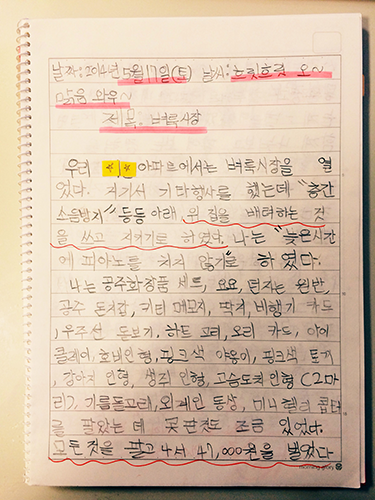 날짜:2014년 5월 17일(토) 날씨:흐릿흐릿 오~
맑음 와우~
제목: 벼룩시장
우리 ☆☆ 아파트에서는 벼룩시장을 열
었다. 거기서 기타행사를 했는데 "층간
소음방지" 등등 아래, 위 집을 배려하는 것
을 쓰고 지키기로 하였다. 나는 "늦은시간
에 피아노를 치지 않기"로 하였다.
나는 공주화장품 세트, 요요, 던지는 원반,
공주 돋지갑, 키티 메모지, 딱지, 비행기 카드
, 우주선 돋보기, 하트 고리, 오리 카드, 아이
클레이, 호비인형, 핑크색 야옹이, 핑크색 토끼,
강아지 인형, 생쥐 인형, 고슴도치 인형 (2마
리), 키튼돌고래, 외계인 동상, 미니헬리 콥터
를 팔았는 데 못판것도 조금 있었다.
모든 것을 팔고 나서 47,000원을 벌었다
morning glory